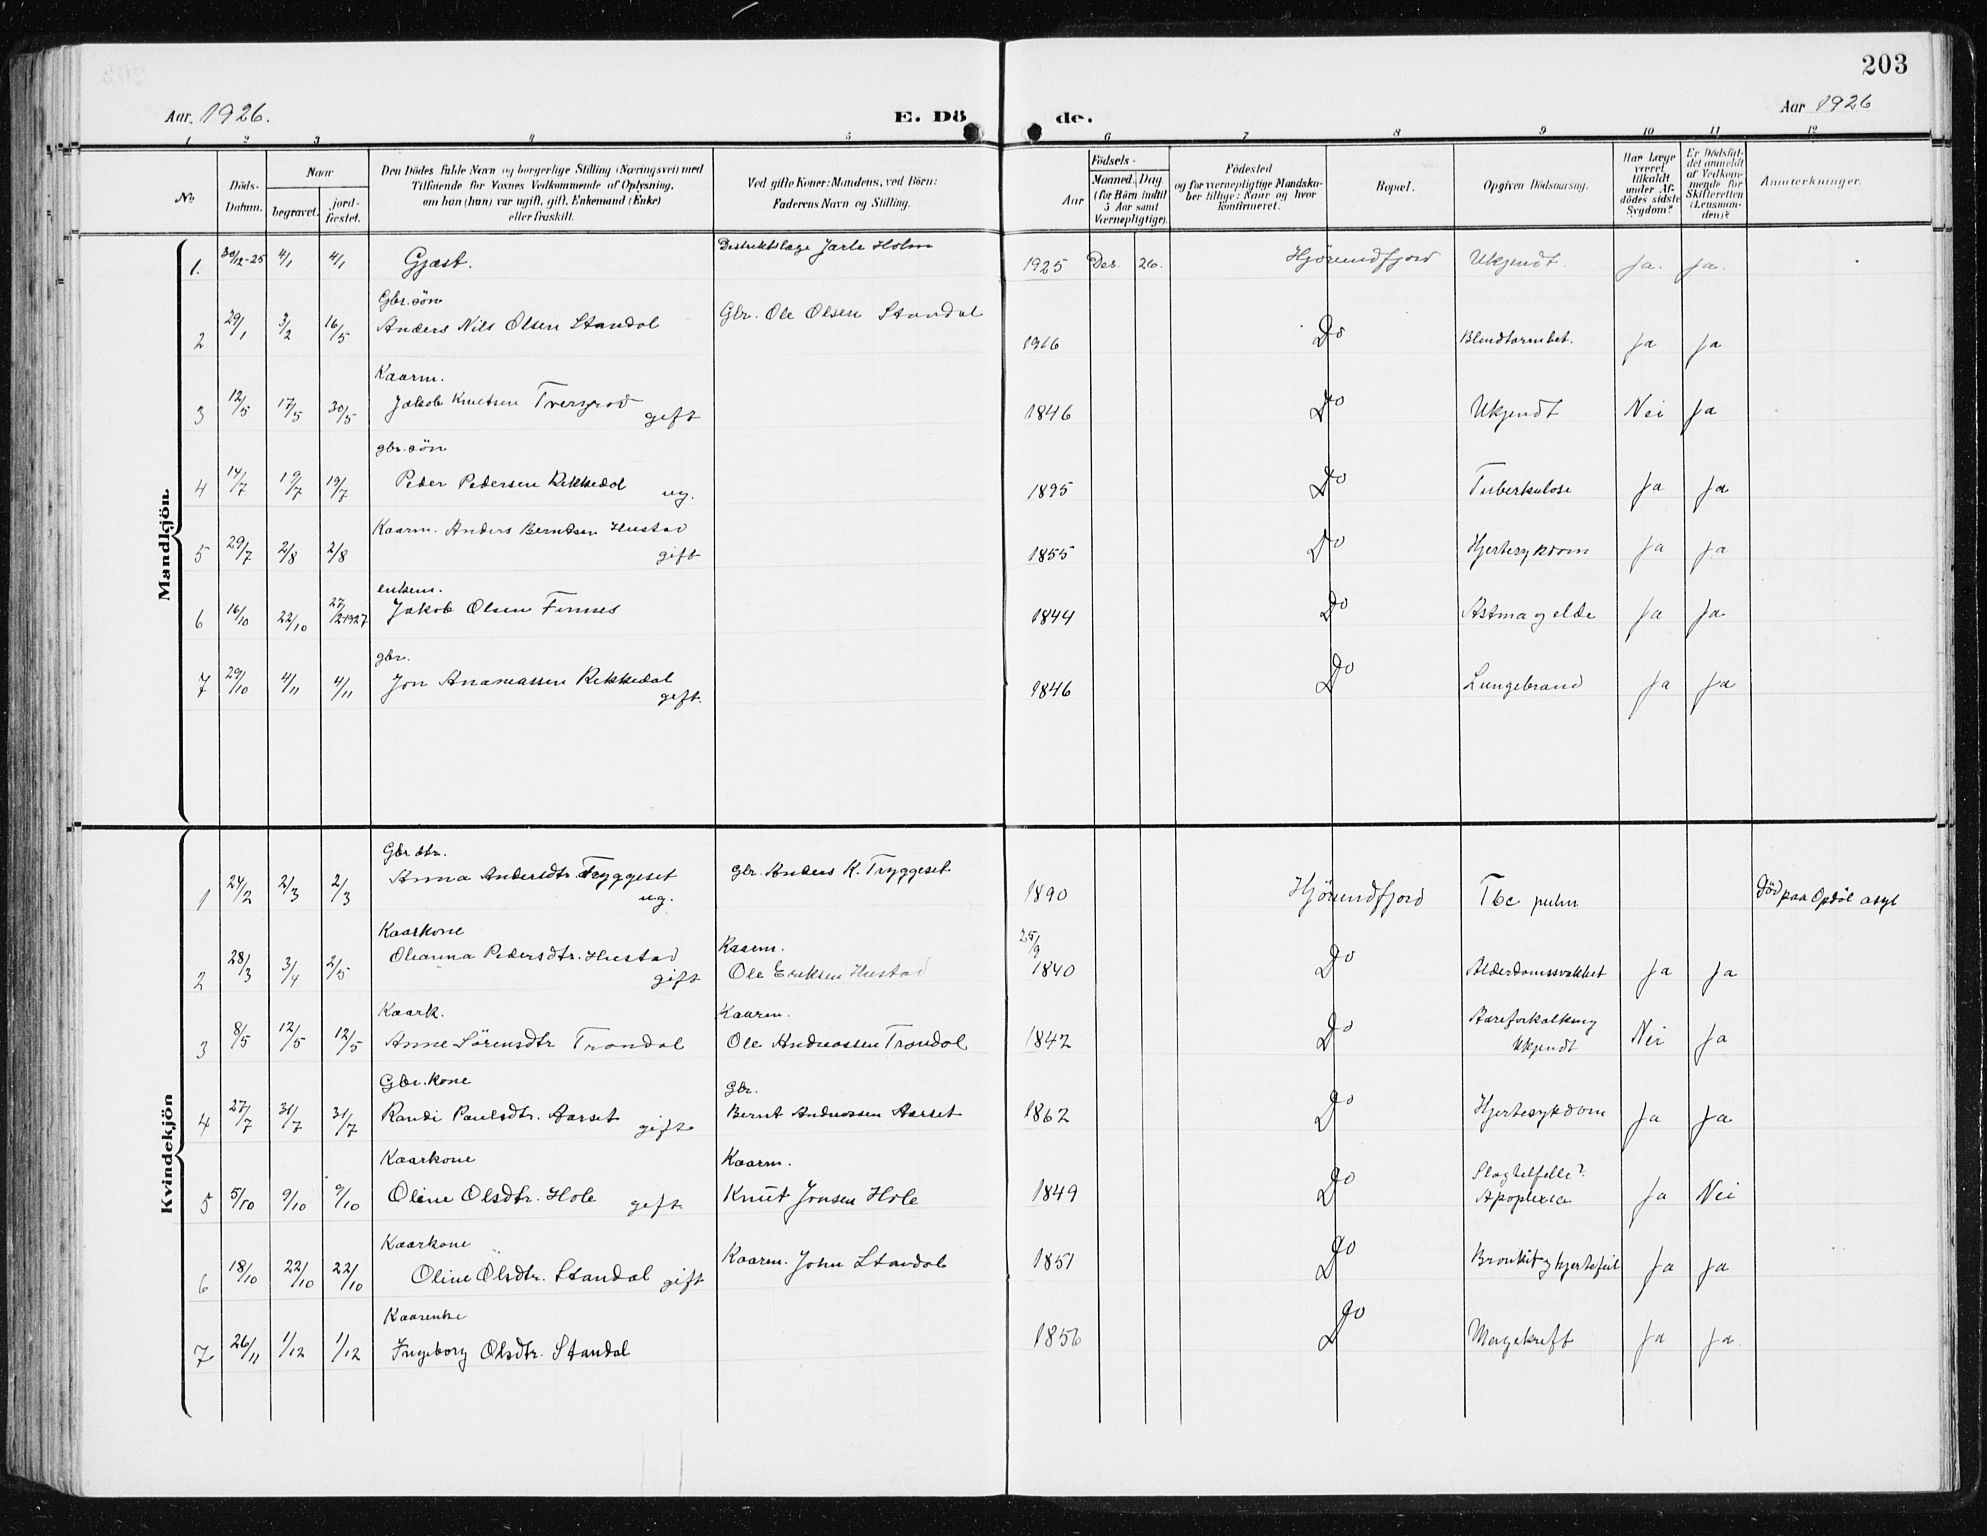 203
Aar 1926.
E. Dö
de.
Aar 1926
1 2 3 4 5 6 7 8 9 10 11 12
No.
Döds-Datum.
Naar
begravet.
jord-fæstet.
Den Dödes fulde Navn og borgerlige Stilling (Næringsvei) med
Tilföiende for Voxnes Vedkommende af Oplysning,
om han (hun) var ugift, gift, Enkemand (Enke)
eller fraskilt.
Ved gifte Koner: Mandens, ved Börn:
Faderens Navn og Stilling.
Födsels-
Aar
Maaned. Dag
(for Börn indtil
5 Aar samt
Værnepligtige).
Födested
og for værnepligtige Mandska-
ber tillige: Naar og hvor
konfirmeret.
Bopæl.
Opgiven Dödsaarsag.
Har Læge
været
tilkaldt
under Af-
dödes sidste
Sygdom?
Er Dödsfal-
det anmeldt
af Vedkom-
mende for
Skifteretten
(Lensman-
den)?
Anmærkninger.
Mandkjön.
Destriktslæge Jarle Holm
1. 30/12-25 4/1 4/1 Gjæst. 1925 Des. 26. Hjörundfjord Ukjendt. Ja. Ja.
Gbr. sön
2 29/1 3/2 16/5 Anders Nils Olsen Standal Gbr. Ole Olsen Standal 1916 Do Blindtarmbet. Ja Ja
Kaarm.
3 12/5 17/5 30/5 Jakob Knutsen gift 1846 Do Ukjendt Nei Ja
gbr. sön
4 14/7 19/7 19/7 Peder Pedersen Rekkedal ug. 1895 Do Tuberkulose Ja Ja
Kaarm. Anders Berndsen Hustad
5 29/7 2/8 2/8 gift 1855 Do Hjertesykdom Ja Ja
enkem.
6 16/10 22/10 27/2 1927 Jakob Olsen Finnes 1844 Do Astma og elde Ja Ja
gbr.
7 29/10 4/11 4/11 Jon Ananiassen Rekkedal gift. 1846 Do Lungebrand Ja Ja
Kvindekjön
Gbr dtr.
1 24/2 2/3 2/3 Anna Andersdtr. Tryggeset ug. gbr. Anders K. Tryggeset 1890 Hjörundfjord Tbc pulm Död paa Opdöl asyl
Kaarkone
2 28/3 3/4 2/5 Olianna Pedersdtr. Hustad gift Kaarm. Ole Eriksen Hustad 25/9 1840 Do Alderdomssvakhet Ja Ja
Kaark. Kaarm.
3 8/5 12/5 12/5 Anne Sörensdtr Trandal Ole Andreassen Trandal 1842 Do Aareforkalkning Ukjendt Nei Ja
Gbr. kone Gbr.
4 27/7 31/7 31/7 Randi Paulsdtr. Aarset gift Bernt Andreassen Aarset 1862 Do Hjertesykdom Ja Ja
Kaarkone Kaarm. Slagtilfelle?
5 5/10 9/10 9/10 Oline Olsdtr. Hole gift Knut Jonsen Hole 1849 Do Apoplexia Ja Nei
Kaarkone
6 18/10 22/10 22/10 Oline Olsdtr. Standal gift Kaarm. John Standal 1851 Do Bronkit og hjertefeil Ja Ja
Kaarenke
7 26/11 1/12 1/12 Ingeborg Olsdtr. Standal 1856 Do Magekreft Ja Ja